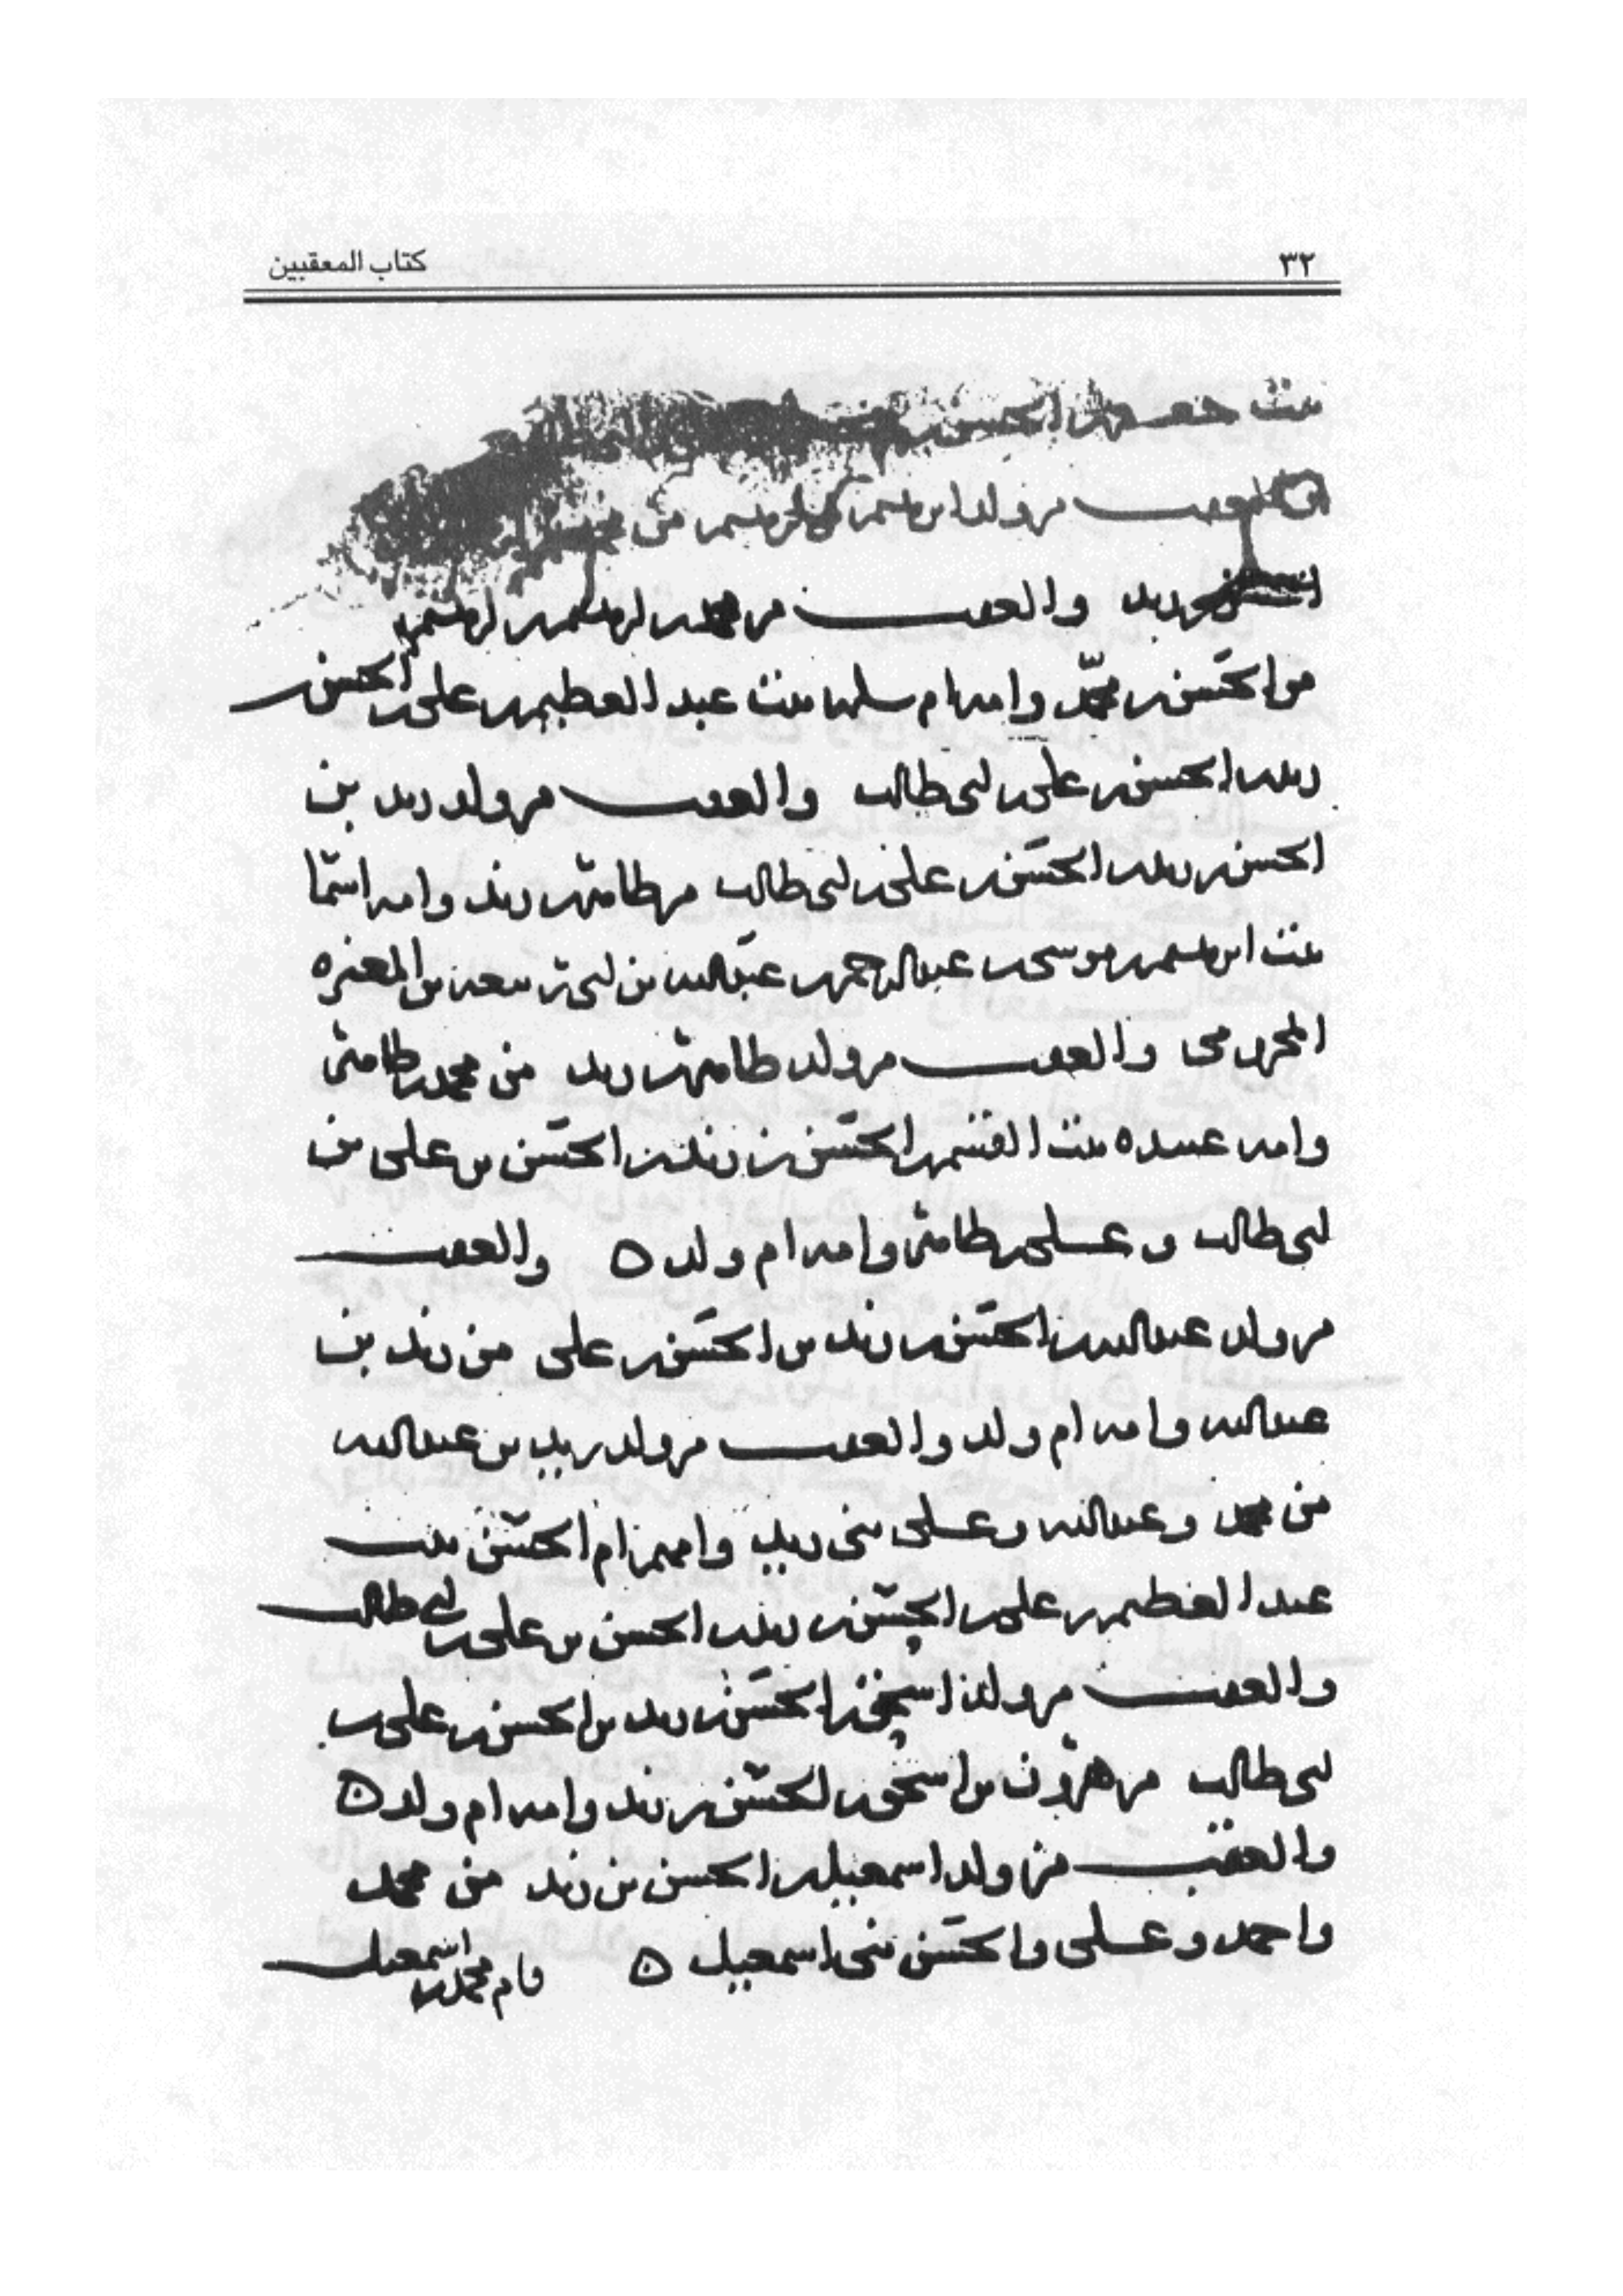 ٣٢
كتاب المعقبين
بنت جعفر بن الحسن
والعقب من ولد ابرهيم ابرهيم من محمد
زيد والعقب من محمد بن ابرهيم بن ابرهيم
من الحسن بن محمد وامه ام سلمه بنت عبد العظيم بن علي بن الحسن بن
زيد بن الحسن بن علي بن ابي طالب والعقب من ولد زيد بن
الحسن بن زيد بن الحسن بن علي بن ابي طالب من طاهر بن زيد وامه اسما
بنت ابرهيم بن موسى بن عبد الرحمن بن عبد الله بن ابي ربيعه بن المغيره
المخزومي والعقب من ولد طاهر بن زيد من محمد بن طاهر
وامه عبيده بنت القسم بن الحسن بن زيد بن الحسن بن علي بن
ابي طالب وعلي بن طاهر وامه ام ولد ه والعقب
من ولد عبد الله بن الحسن بن زيد بن الحسن بن علي من زيد بن
عبد الله وامه ام ولد والعقب من ولد زيد بن عبد الله
من محمد وعبد الله وعلي بني زيد وامهم ام الحسن بنت
عبد العظيم بن علي بن الحسن بن زيد بن الحسن بن علي بن ابي طالب
والعقب من ولد اسحق بن الحسن بن زيد بن الحسن بن علي بن
ابي طالب من هرون بن اسحق بن الحسن بن زيد وامه ام ولد ه
والعقب من ولد اسمعيل بن الحسن بن زيد من محمد
واحمد وعلي والحسن بني اسمعيل ه فام محمد بن اسمعيل